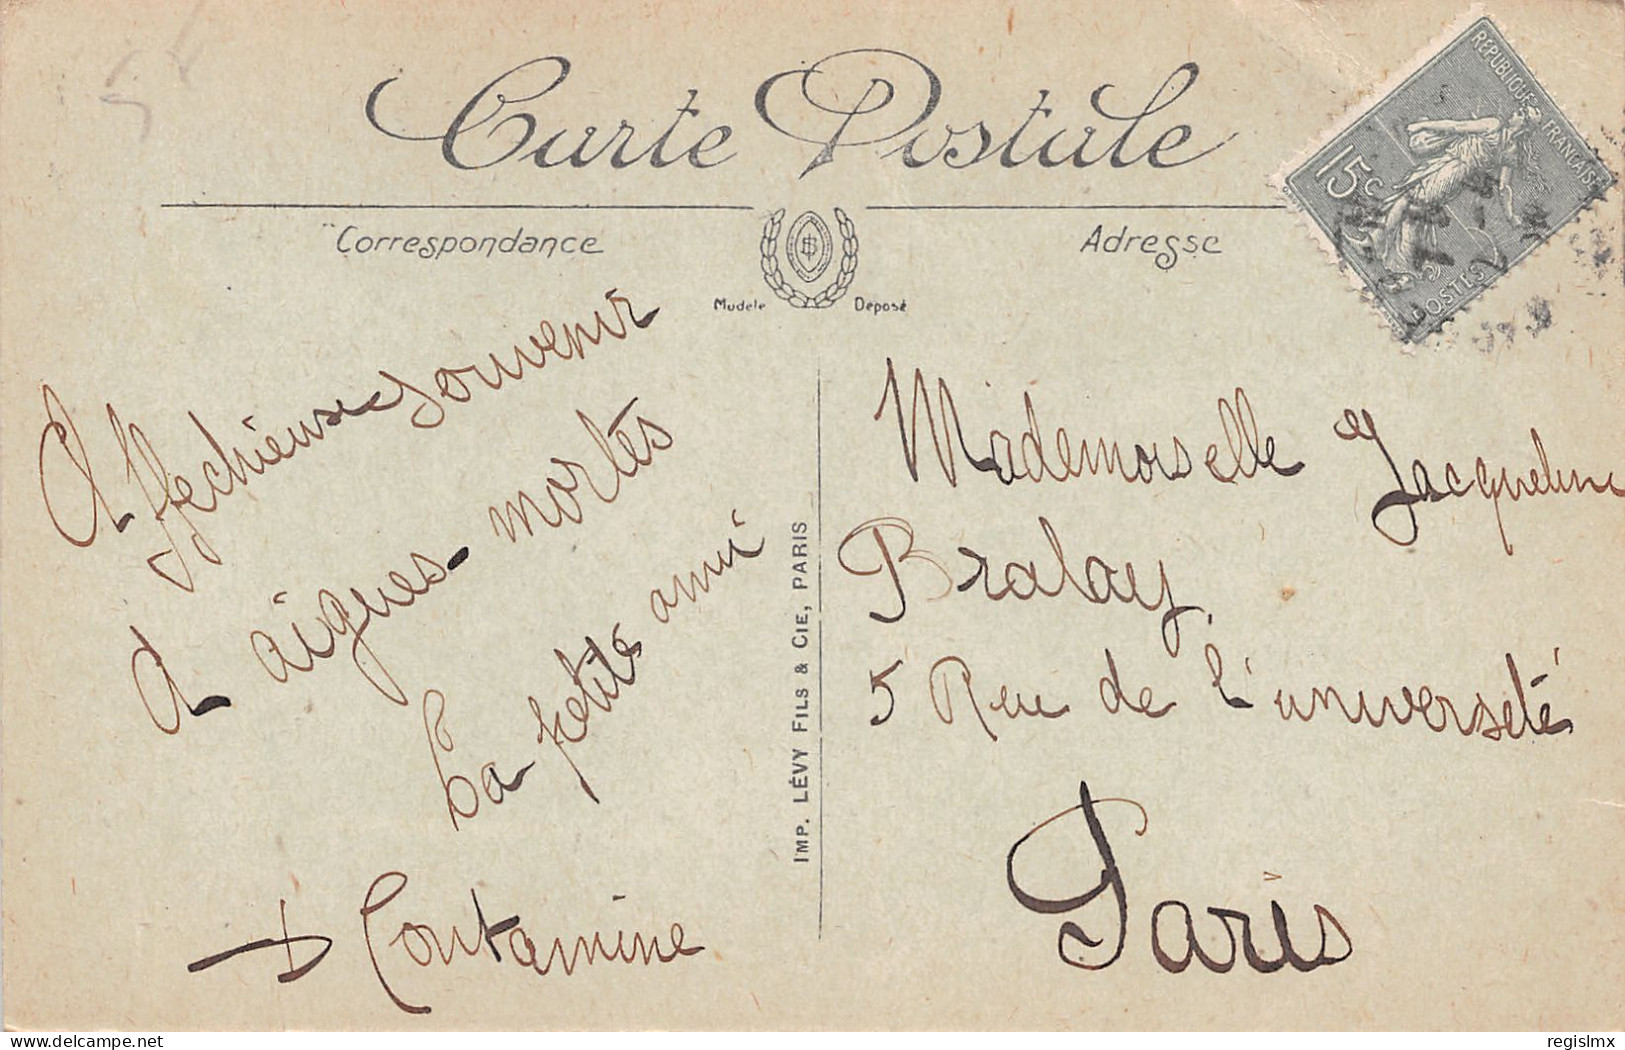 Carte Postale
Correspondance
Adresse
Modèle
Déposé
RÉPUBLIQUE FRANÇAISE
15c
POSTES
Affechieuse souvenir
d aigues-mortes
La petite ami
D Contamine
IMP. LÉVY FILS & CIE, PARIS
Mademoiselle Jacqueline
Bralay
5 Rue de l'université
Paris
delcampe.net
regislmx